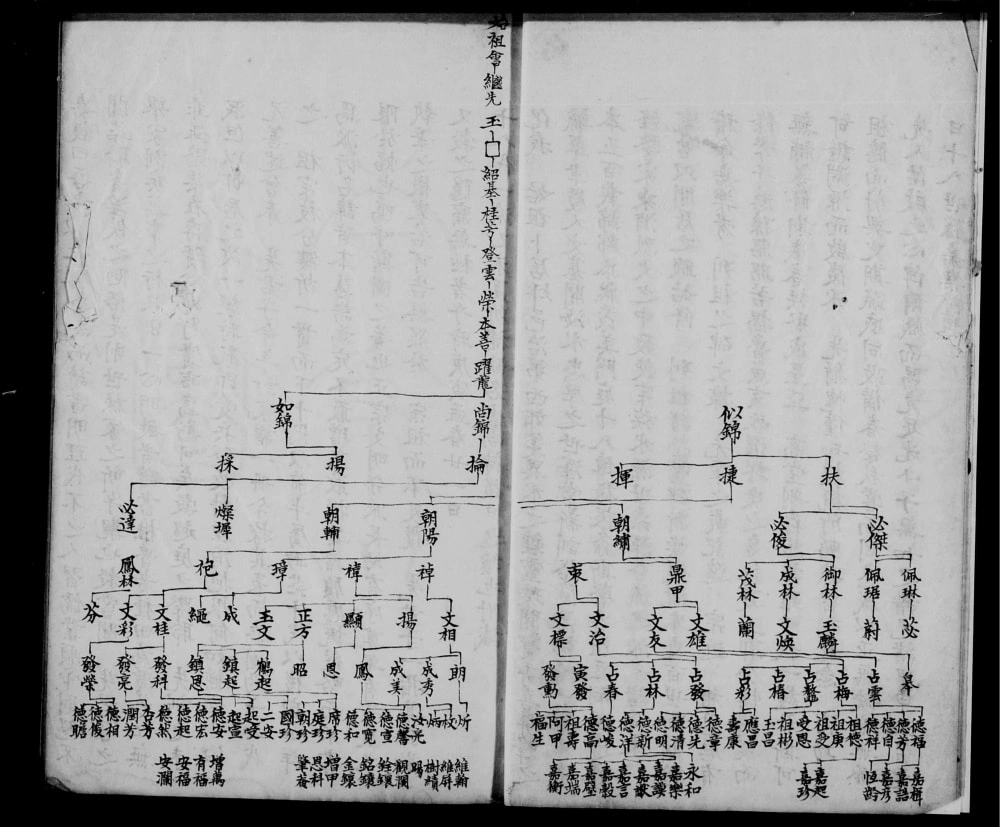 始祖會繼先
玉
□
紹基
桂芳
登雲
榮
本善
躍龍
似錦
尚錦
如錦
扶
捷
揮
掄
揚
採
必傑
必俊
朝繡
朝陽
朝輔
燦墀
必達
佩琳
佩琚
御林
成林
茂林
鼎甲
衷
禕
璋
袍
鳳林
苾
蔚
玉麟
文煥
蘭
文雄
文友
文治
文標
文相
揚
顯
正方
玉文
成
繩
文桂
文彩
芬
皋
占雲
占梅
占鰲
占椿
占彩
占發
占林
占春
寅發
發勳
朗
成秀
成美
鳳
恩
昭
鶴起
鎮起
鎮恩
發科
發亮
發榮
德福
德芳
德自
德祥
祖德
祖庚
祖受
受恩
祖彬
玉昌
應昌
壽康
德章
德先
德清
德明
德新
德洋
德峻
德高
祖壽
阿甲
福生
炘
枚
炳
德馨
德宣
德寬
德和
席珍
庭珍
朝珍
國珍
二安
起受
起宣
德安
德宏
德起
德然
杏芳
潤芳
德相
德俊
德瞻
嘉楫
嘉語
嘉彥
恒齡
嘉起
嘉珍
永和
嘉樂
嘉謨
嘉猷
嘉言
嘉穀
嘉壁
嘉端
嘉衡
維翰
維屏
樹績
賜
觀瀾
銓鑲
銘鑲
金鑲
增甲
恩科
肇蕃
增萬
有福
安福
安瀾